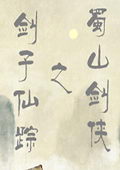 蜀山剑侠
之
剑子仙踪